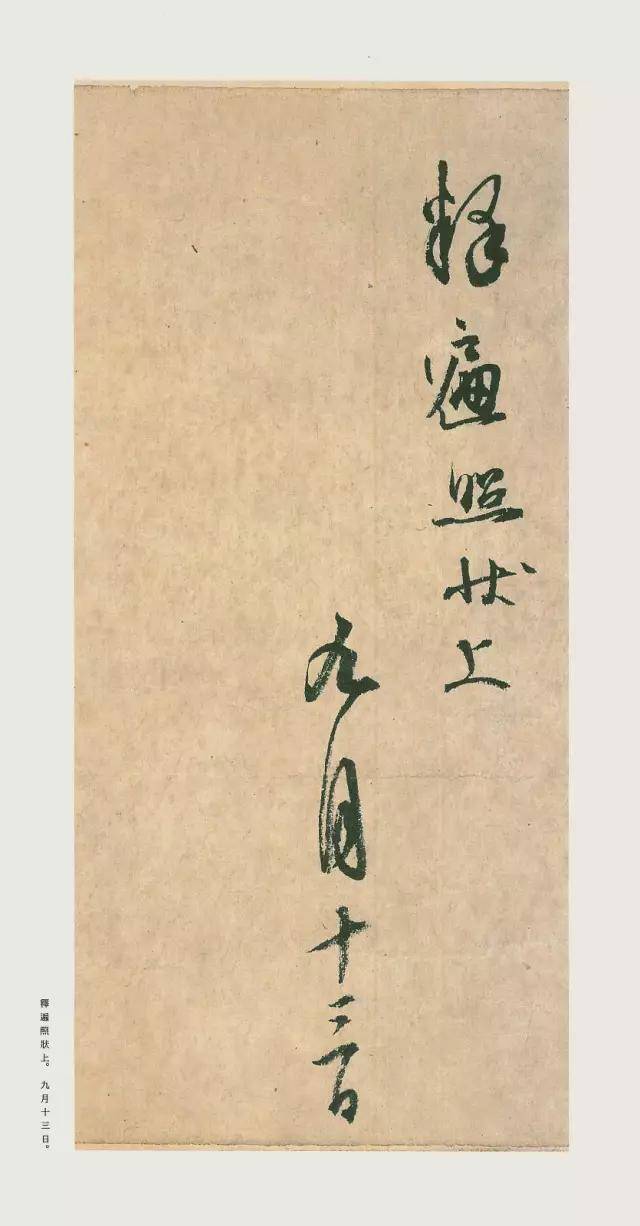 釋遍照狀上
九月十三日
釋遍照狀上。九月十三日。